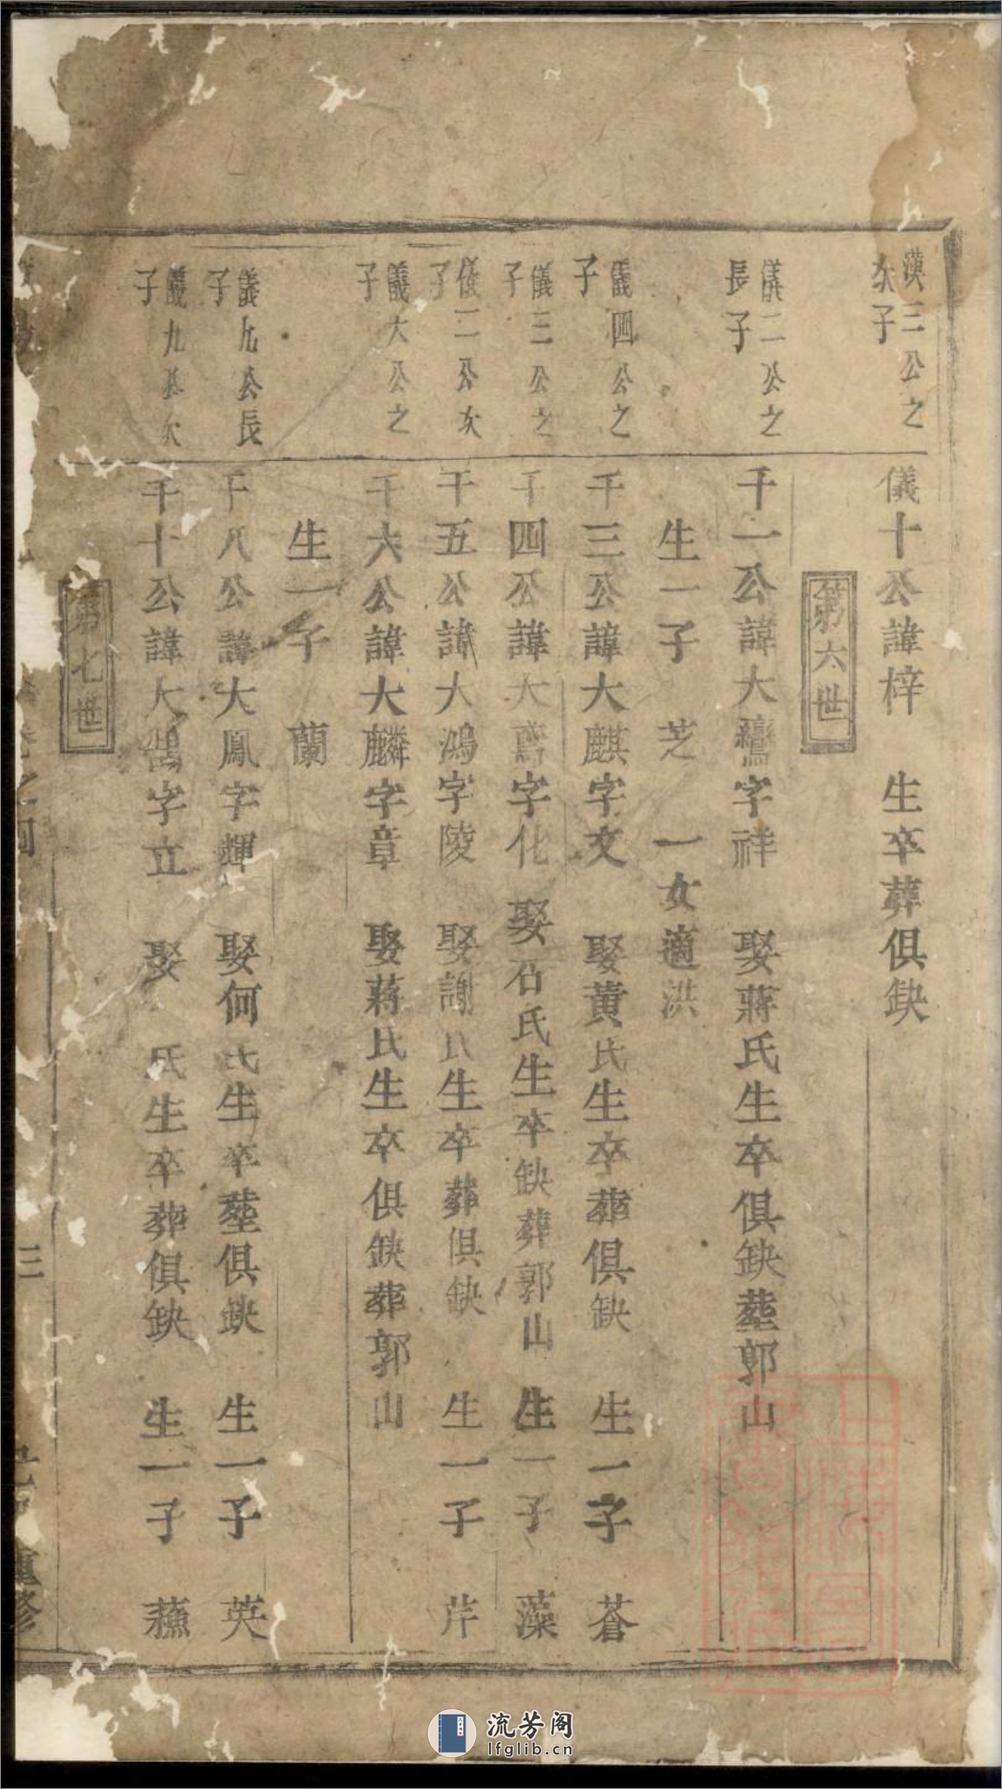 漢三公之次子
儀十公諱梓 生卒葬俱缺
第六世
儀二公之長子
千一公諱大鸞字祥 娶蔣氏生卒俱缺塟郭山
生一子 芝 一女適洪
儀四公之子
千三公諱大麒字文 娶黃氏生卒葬俱缺 生一子 蒼
儀三公之子
千四公諱大鵉字化 娶石氏生卒缺葬郭山 生一子 藻
儀二公次子
千五公諱大鴻字陵 娶謝氏生卒葬俱缺 生一子 芹
儀大公之子
千六公諱大麟字章 娶蔣氏生卒俱缺葬郭山
生一子 蘭
儀九公長子
千八公諱大鳳字輝 娶何氏生卒塟俱缺 生一子 英
儀九公次子
千十公諱大鵠字立 娶 氏生卒葬俱缺 生一子 蘓
第七世
三
重修
流芳阁
lfglib.cn